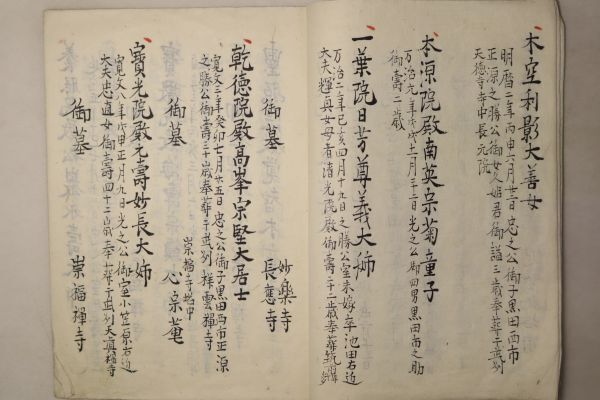 木空利影大善女
明暦二年丙申六月廿二日忠之公御子黒田西市
正源之勝公御女人姫君御謚三歳奉葬于武州
天徳寺寺中長元院
本源院殿南英宗菊童子
万治元年戊戌十二月二十二日光之公御四男黒田百之助
御壽二歳
一葉院日芳尊義大姉
万治二年己亥四月十九日之勝公室未嫁卒池田右近
大夫輝興女母者清光院殿御壽二十二歳奉葬
妙樂寺
御墓
長應寺
乾徳院殿高峯宗堅大居士
寛文三年癸卯七月廿五日忠之公御子黒田西市正源
之勝公御壽三十歳奉葬于武州祥雲禅寺
崇福寺塔中
御墓
心宗菴
寶光院殿元壽妙長大姉
寛文八年戊申正月九日光之公御室小笠原右近
大夫忠真女御壽四十二歳奉葬于武州天真禅寺
御墓
崇福禅寺